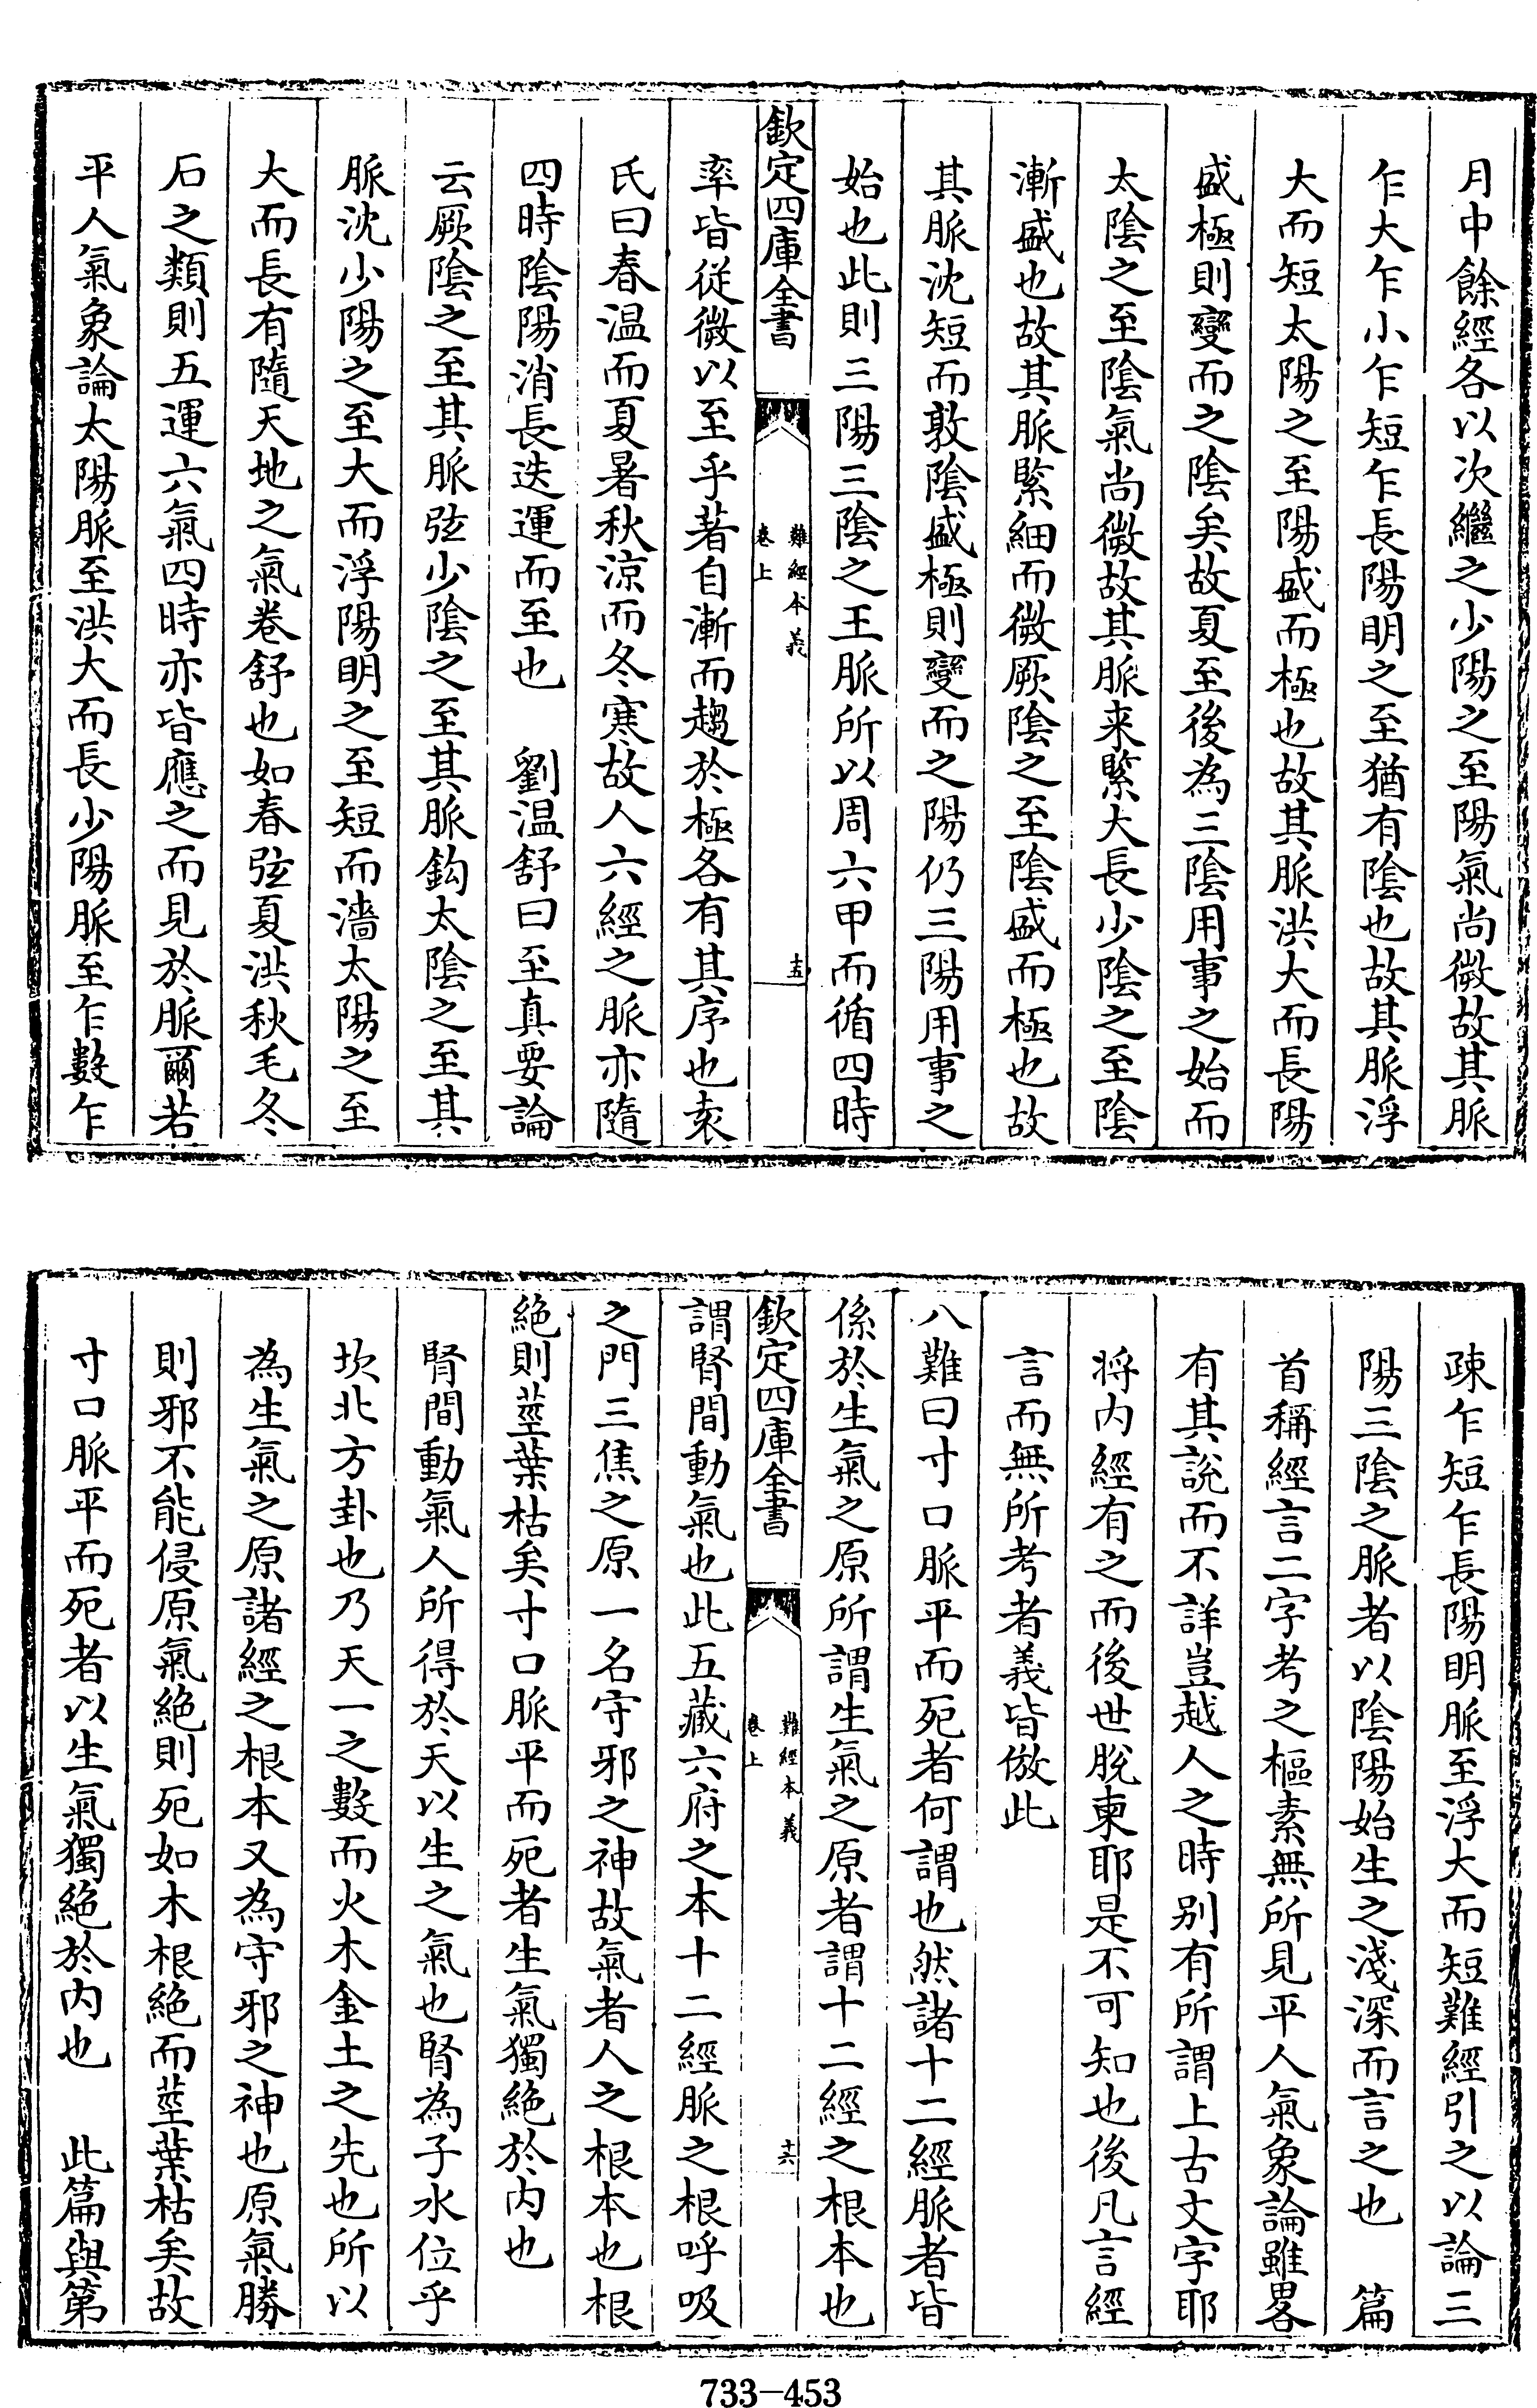 月中餘經各以次繼之少陽之至陽氣尚微故其脈
乍大乍小乍短乍長陽明之至猶有陰也故其脈浮
大而短太陽之至陽盛而極也故其脈洪大而長陽
盛極則變而之陰矣故夏至後為三陰用事之始而
太陰之至陰氣尚微故其脈来緊大長少陰之至陰
漸盛也故其脈緊細而微厥陰之至陰盛而極也故
其脈沈短而敦陰盛極則變而之陽仍三陽用事之
始也此則三陽三陰之王脈所以周六甲而循四時
欽定四庫全書
難經本義
卷上
十五
率皆從微以至乎著自漸而趨於極各有其序也袁
氏曰春温而夏暑秋涼而冬寒故人六經之脈亦隨
四時陰陽消長迭運而至也 劉温舒曰至真要論
云厥陰之至其脈弦少陰之至其脈鈎太陰之至其
脈沈少陽之至大而浮陽明之至短而濇太陽之至
大而長有隨天地之氣卷舒也如春弦夏洪秋毛冬
石之類則五運六氣四時亦皆應之而見於脈爾若
平人氣象論太陽脈至洪大而長少陽脈至乍數乍
疎乍短乍長陽明脈至浮大而短難經引之以論三
陽三陰之脈者以陰陽始生之淺深而言之也 篇
首稱經言二字考之樞素無所見平人氣象論雖畧
有其説而不詳豈越人之時别有所謂上古文字耶
将内經有之而後世脫柬耶是不可知也後凡言經
言而無所考者義皆倣此
八難曰寸口脈平而死者何謂也然諸十二經脈者皆
係於生氣之原所謂生氣之原者謂十二經之根本也
欽定四庫全書
難經本義
卷上
十六
謂腎間動氣也此五藏六府之本十二經脈之根呼吸
之門三焦之原一名守邪之神故氣者人之根本也根
絶則莖葉枯矣寸口脈平而死者生氣獨絶於内也
腎間動氣人所得於天以生之氣也腎為子水位乎
坎北方卦也乃天一之數而火木金土之先也所以
為生氣之原諸經之根本又為守邪之神也原氣勝
則邪不能侵原氣絶則死如木根絶而莖葉枯矣故
寸口脈平而死者以生氣獨絶於内也 此篇與第
733-453